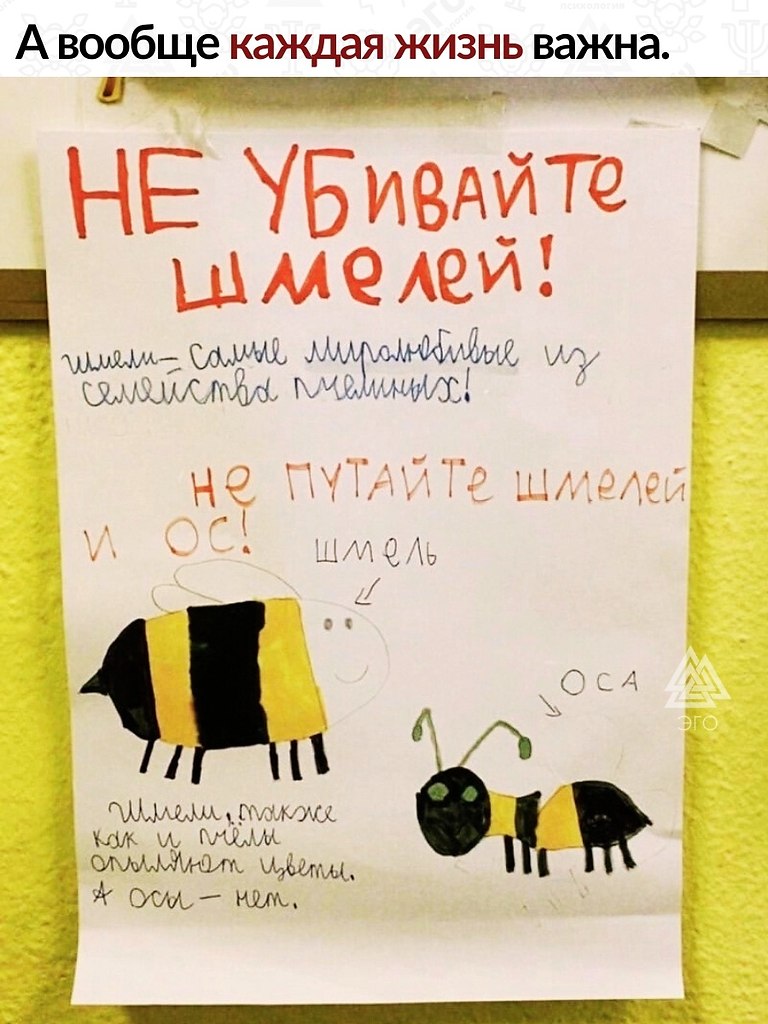 А вообще каждая жизнь важна.
НЕ УБИВАЙТЕ
ШМЕЛЕЙ!
шмели – самые миролюбивые из
семейства пчелиных!
НЕ ПУТАЙТЕ ШМЕЛЕЙ
И ОС!
ШМЕЛЬ
ОСА
ЭГО
Шмели, также
как и пчёлы
опыляют цветы.
А осы – нет.